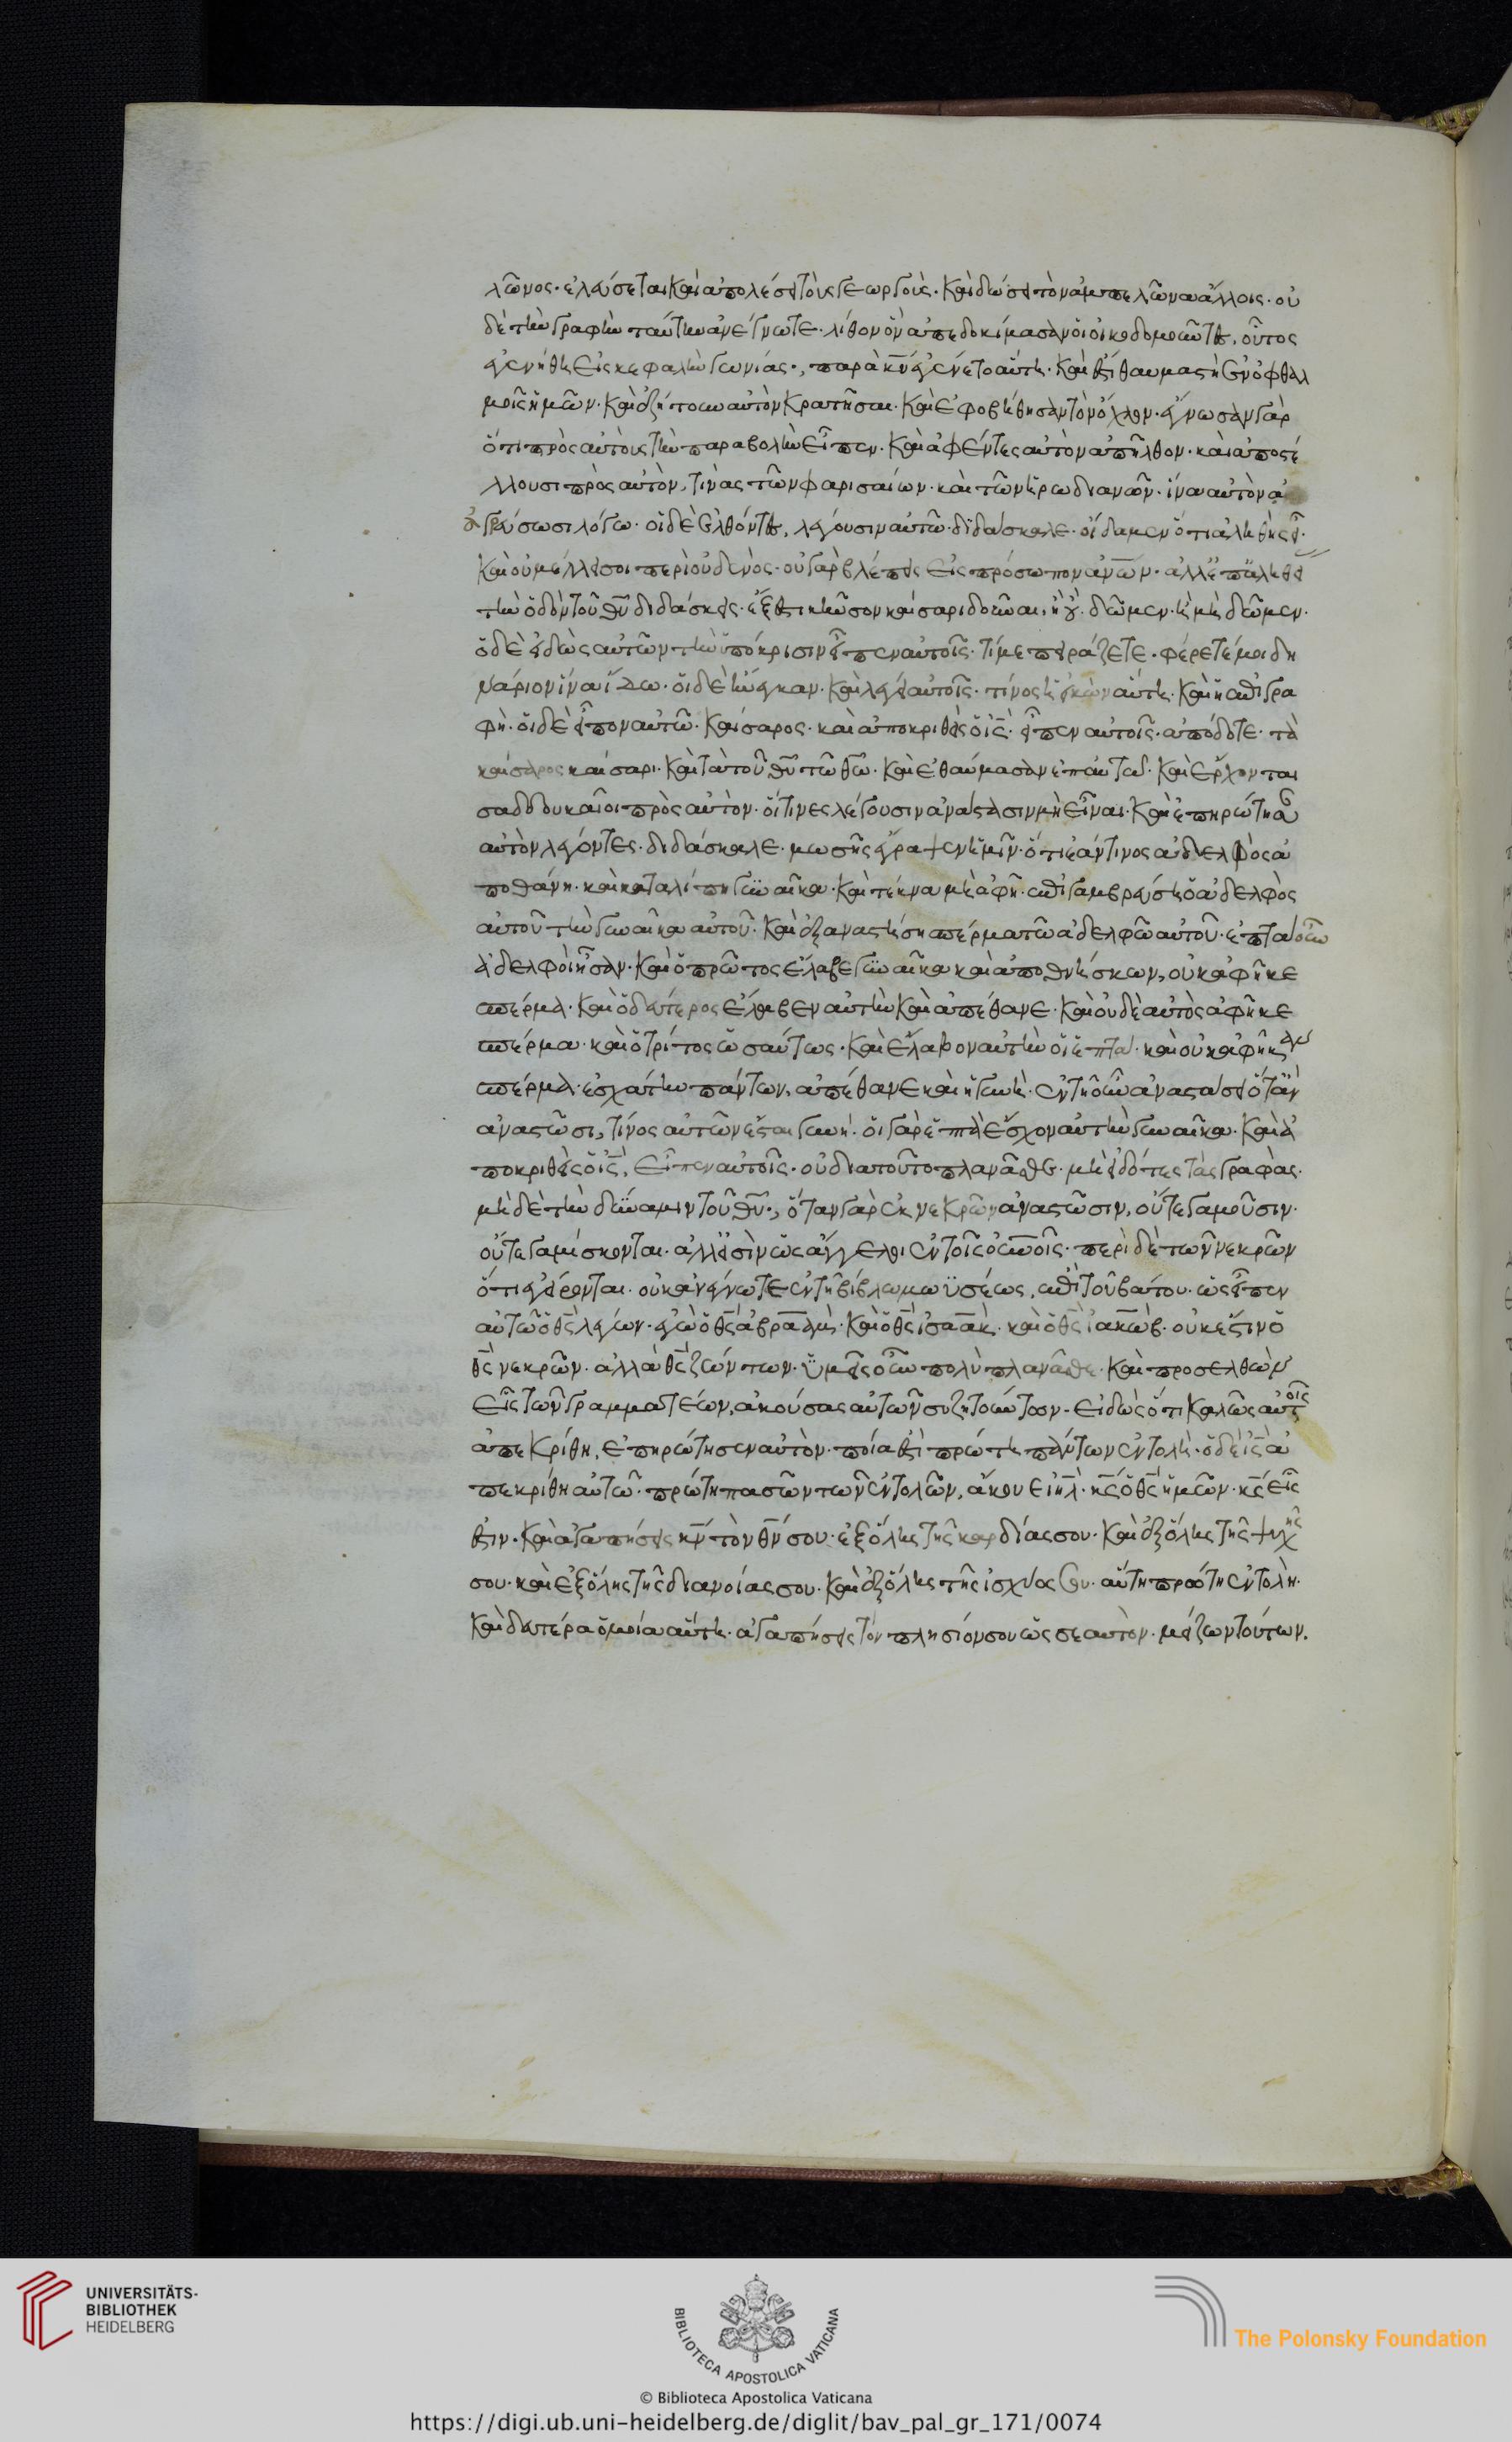 λῶνος· ἐλεύσεται καὶ ἀπολέσει τοὺς γεωργοὺς· καὶ δώσει τὸν ἀμπελῶνα ἄλλοις· οὐ
δὲ τὴν γραφὴν ταύτην ἀνέγνωτε· λίθον ὃν ἀπεδοκίμασαν οἱ οἰκοδομοῦντες, οὗτος
ἐγενήθη εἰς κεφαλὴν γωνίας·, παρὰ κ̅υ̅ ἐγένετο αὕτη· καὶ ἔστι θαυμαστὴ ἐν ὀφθαλ
μοῖς ἡμῶν· καὶ ἐζήτουν αὐτὸν κρατῆσαι· καὶ ἐφοβήθησαν τὸν ὄχλον· ἔγνωσαν γὰρ
ὅτι πρὸς αὐτοὺς τὴν παραβολὴν εἶπεν· καὶ ἀφέντες αὐτὸν ἀπῆλθον· καὶ ἀποστέ
λλουσι πρὸς αὐτὸν, τινὰς τῶν φαρισαίων· καὶ τῶν ἡρωδιανῶν· ἵνα αὐτὸν ἀ
γρεύσωσι λόγω· οἱ δὲ ἐλθόντες, λέγουσιν αὐτῶ· διδάσκαλε· οἴδαμεν ὅτι ἀληθὴς εἶ·
καὶ οὐ μέλλει σοι περὶ οὐδενὸς· οὐ γὰρ βλέπεις εἰς πρόσωπον ἀν̅ω̅ν· ἀλλ' ἐπ' ἀληθεί
τὴν ὁδὸν τοῦ θ̅υ̅ διδάσκεις· ἔξεστι κῆνσον καίσαρι δοῦναι, ἢ οὔ· δῶμεν· ἢ μὴ δῶμεν·
ὁ δὲ εἰδὼς αὐτῶν τὴν ὑπόκρισιν εἶπεν αὐτοῖς· τί με πειράζετε· φέρετέ μοι δη
νάριον ἵνα ἴδω· οἱ δὲ ἤνεγκαν· καὶ λέγει αὐτοῖς· τίνος ἡ εἰκὼν αὕτη· καὶ ἡ ἐπιγρα
φή· οἱ δὲ εἶπον αὐτῶ· καίσαρος· καὶ ἀποκριθεὶς ὁ ι̅ς̅· εἶπεν αὐτοῖς· ἀπόδοτε· τὰ
καίσαρος καίσαρι· καὶ τὰ τοῦ θ̅υ̅ τῶ θ̅ω̅· καὶ ἐθαύμασαν ἐπ' αὐτῶ· καὶ ἔρχονται
σαδδουκαῖοι πρὸς αὐτὸν· οἵτινες λέγουσιν ἀνάστασιν μὴ εἶναι· καὶ ἐπηρώτησαν
αὐτὸν λέγοντες· διδάσκαλε· μωσῆς ἔγραψεν ἡμῖν· ὅτι ἐάν τινος ἀδελφὸς ἀ
ποθάνη· καὶ καταλίπη γυναῖκα· καὶ τέκνα μὴ ἀφῆ· ἐπιγαμβρεύση ὁ ἀδελφὸς
αὐτοῦ τὴν γυναῖκα αὐτοῦ· καὶ ἐξαναστήση σπέρμα τῶ ἀδελφῶ αὐτοῦ· ἑπτὰ οὖν
ἀδελφοὶ ἦσαν· καὶ ὁ πρῶτος ἔλαβε γυναῖκα καὶ ἀποθνήσκων, οὐκ ἀφῆκε
σπέρμα· καὶ ὁ δεύτερος ἔλαβεν αὐτὴν καὶ ἀπέθανε· καὶ οὐδὲ αὐτὸς ἀφῆκε
σπέρμα· καὶ ὁ τρίτος ὡσαύτως· καὶ ἔλαβον αὐτὴν οἱ ἑπτὰ· καὶ οὐκ ἀφῆκαν
σπέρμα· ἐσχάτη πάντων, ἀπέθανε καὶ ἡ γυνή· ἐν τῆ οὖν ἀναστάσει ὅταν
ἀναστῶσι, τίνος αὐτῶν ἔσται γυνή· οἱ γὰρ ἑπτὰ ἔσχον αὐτὴν γυναῖκα· καὶ ἀ
ποκριθεὶς ὁ ι̅ς̅, εἶπεν αὐτοῖς· οὐ διατοῦτο πλανᾶσθε· μὴ εἰδότες τὰς γραφὰς·
μηδὲ τὴν δύναμιν τοῦ θ̅υ̅·, ὅταν γὰρ ἐκ νεκρῶν ἀναστῶσιν, οὔτε γαμοῦσιν·
οὔτε γαμίσκονται· ἀλλ' εἰσὶν ὡς ἄγγελοι ἐν τοῖς οὐ̅ν̅οῖς· περὶ δὲ τῶν νεκρῶν
ὅτι ἐγείρονται· οὐκ ἀνέγνωτε ἐν τῆ βίβλω μωϋσέως, ἐπὶ τοῦ βάτου· ὡς εἶπεν
αὐτῶ ὁ θ̅ς̅ λέγων· ἐγὼ ὁ θ̅ς̅ ἀβραὰμ· καὶ ὁ θ̅ς̅ ἰσαὰκ· καὶ ὁ θ̅ς̅ ἰακώβ· οὐκ ἔστιν ὁ
θ̅ς̅ νεκρῶν· ἀλλὰ θ̅ς̅ ζώντων· ὑμεῖς οὖν πολὺ πλανᾶσθε· καὶ προσελθὼν
εἷς τῶν γραμματέων, ἀκούσας αὐτῶν συζητούντων· εἰδὼς ὅτι καλῶς αὐτοῖς
ἀπεκρίθη, ἐπηρώτησεν αὐτὸν· ποία ἐστὶ πρώτη πάντων ἐντολή· ὁ δὲ ι̅ς̅ ἀ
πεκρίθη αὐτῶ· πρώτη πασῶν τῶν ἐντολῶν, ἄκουε ι̅η̅λ̅· κ̅ς̅ ὁ θ̅ς̅ ἡμῶν· κ̅ς̅ εἷς
ἐστιν· καὶ ἀγαπήσεις κ̅ν̅ τὸν θ̅ν̅ σου· ἐξ ὅλης τῆς καρδίας σου· καὶ ἐξ ὅλης τῆς ψυχῆς
σου· καὶ ἐξ ὅλης τῆς διανοίας σου· καὶ ἐξ ὅλης τῆς ἰσχύος σου· αὕτη πρώτη ἐντολὴ·
καὶ δευτέρα ὁμοία αὕτη· ἀγαπήσεις τὸν πλησίον σου ὡς σεαυτὸν· μείζων τούτων·
UNIVERSITÄTS-
BIBLIOTHEK
HEIDELBERG
BIBLIOTECA APOSTOLICA VATICANA
The Polonsky Foundation
© Biblioteca Apostolica Vaticana
https://digi.ub.uni-heidelberg.de/diglit/bav_pal_gr_171/0074